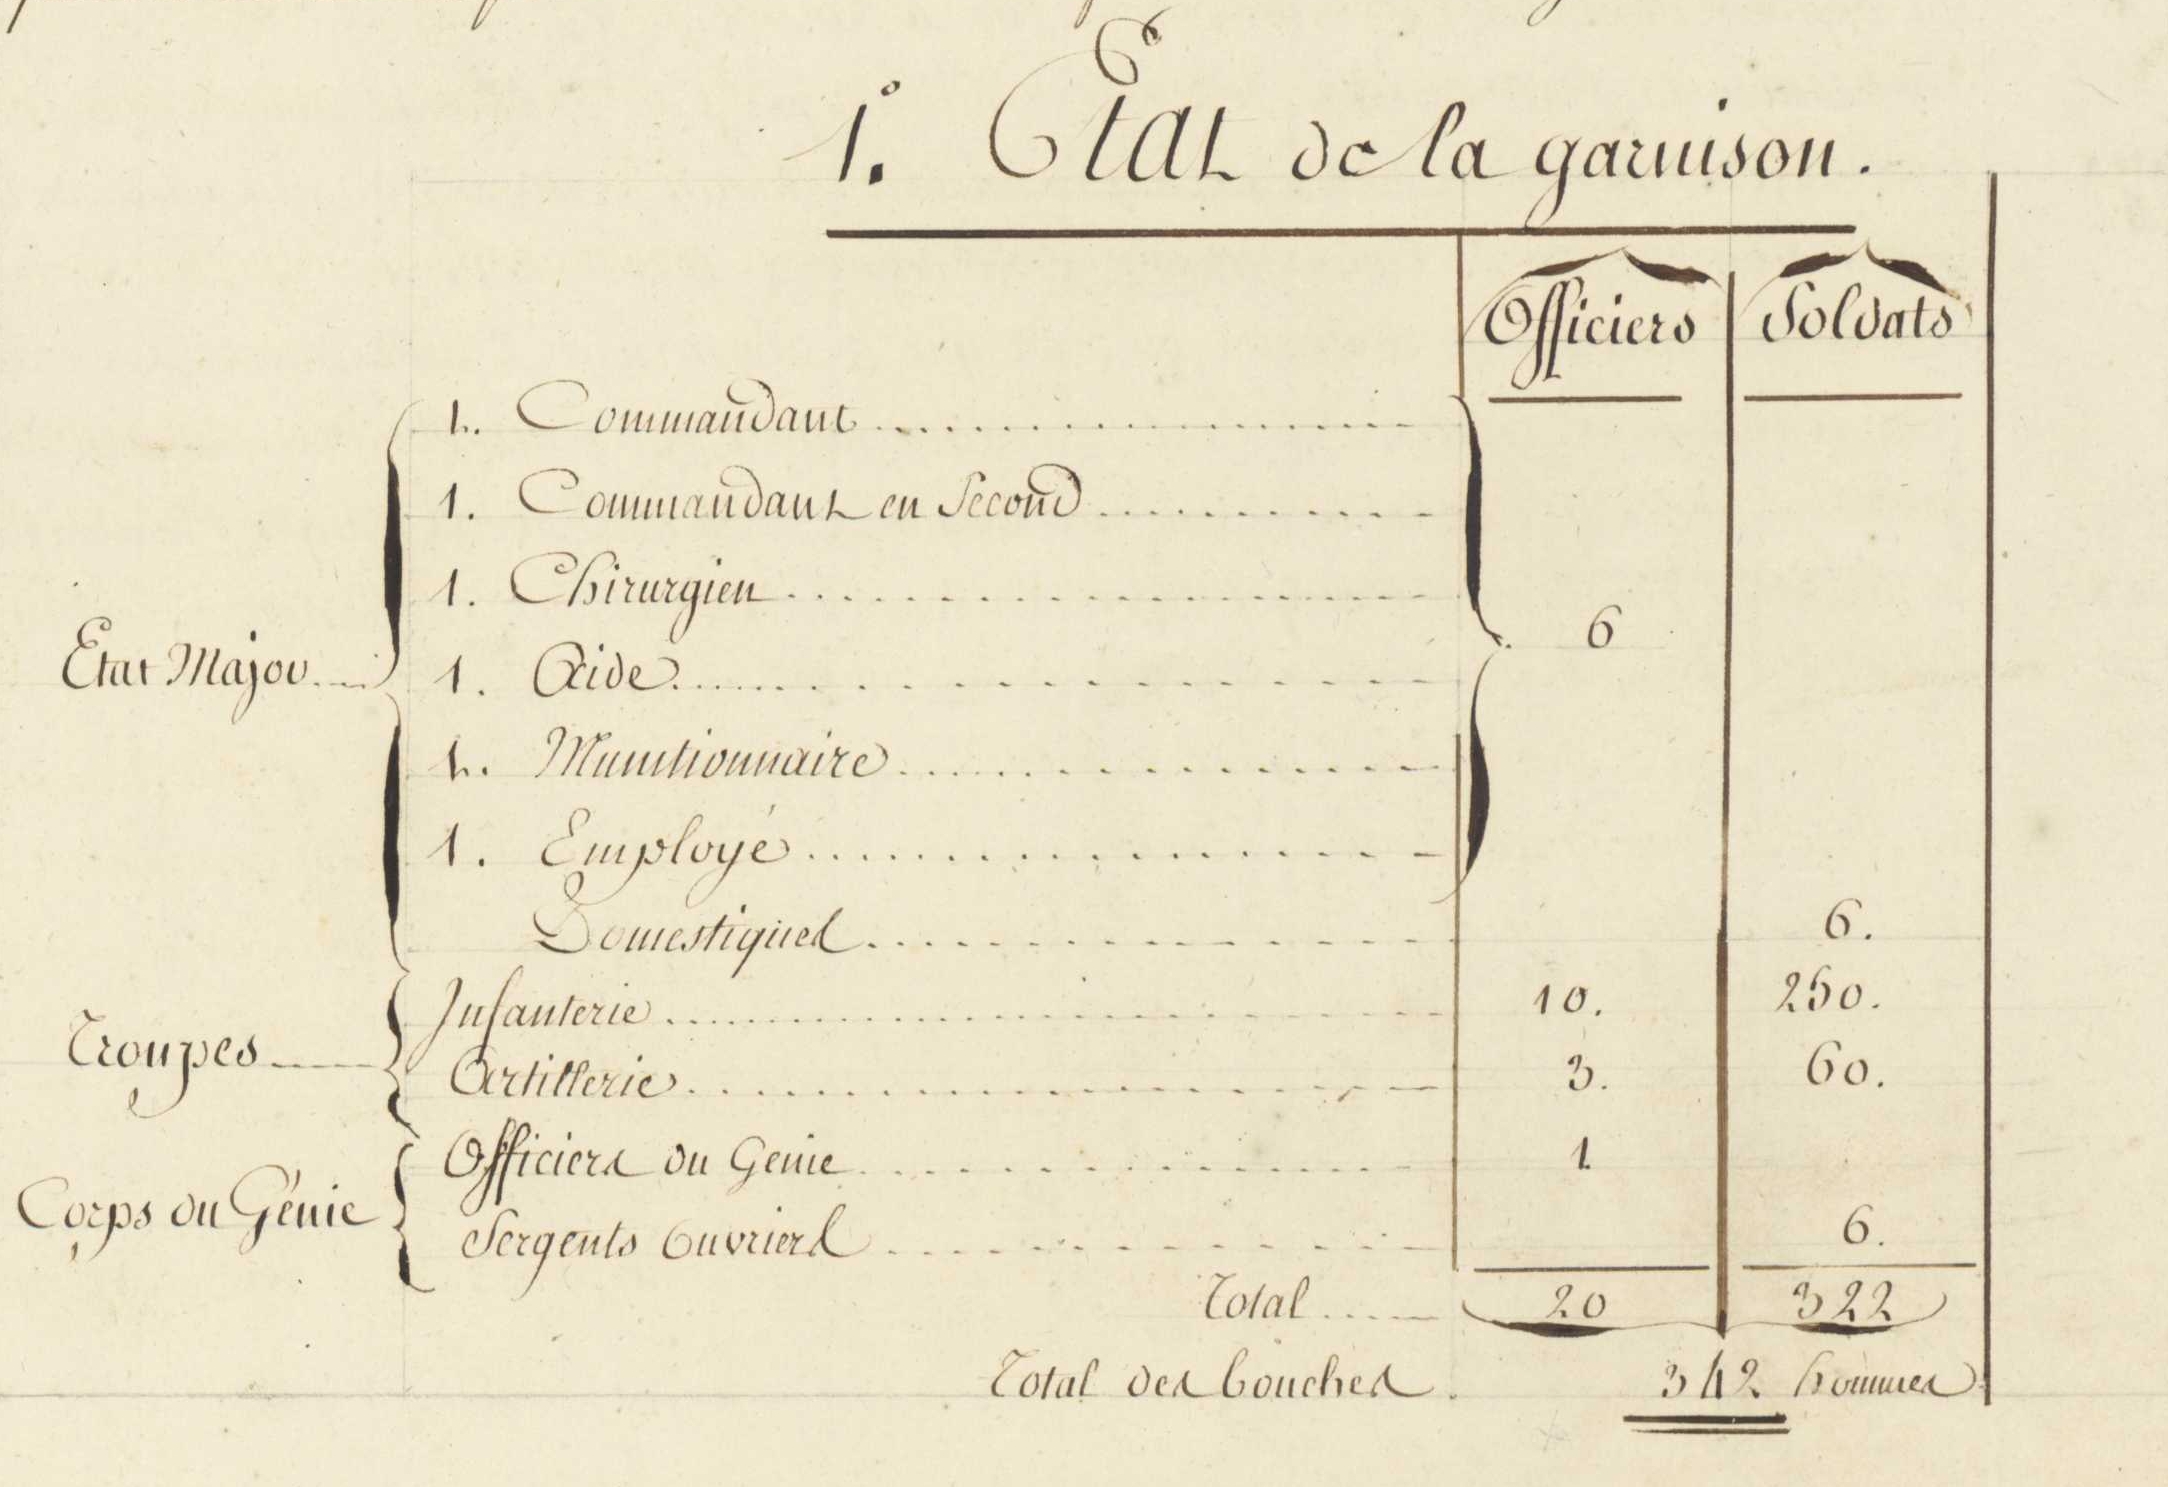 1.° Etat de la garnison.
Officiers Soldats
1. Commandant
1. Commandant en Second
1. Chirurgien
6
Etat Major 1. Aide
1. Munitionnaire
1. Employé
Domestiques 6.
Infanterie 10. 250.
Troupes
Artillerie 3. 60.
Officiers du Genie 1
Corps du Génie
Sergents Ouvriers 6.
Total 20 322
Total des bouches 342 hommes